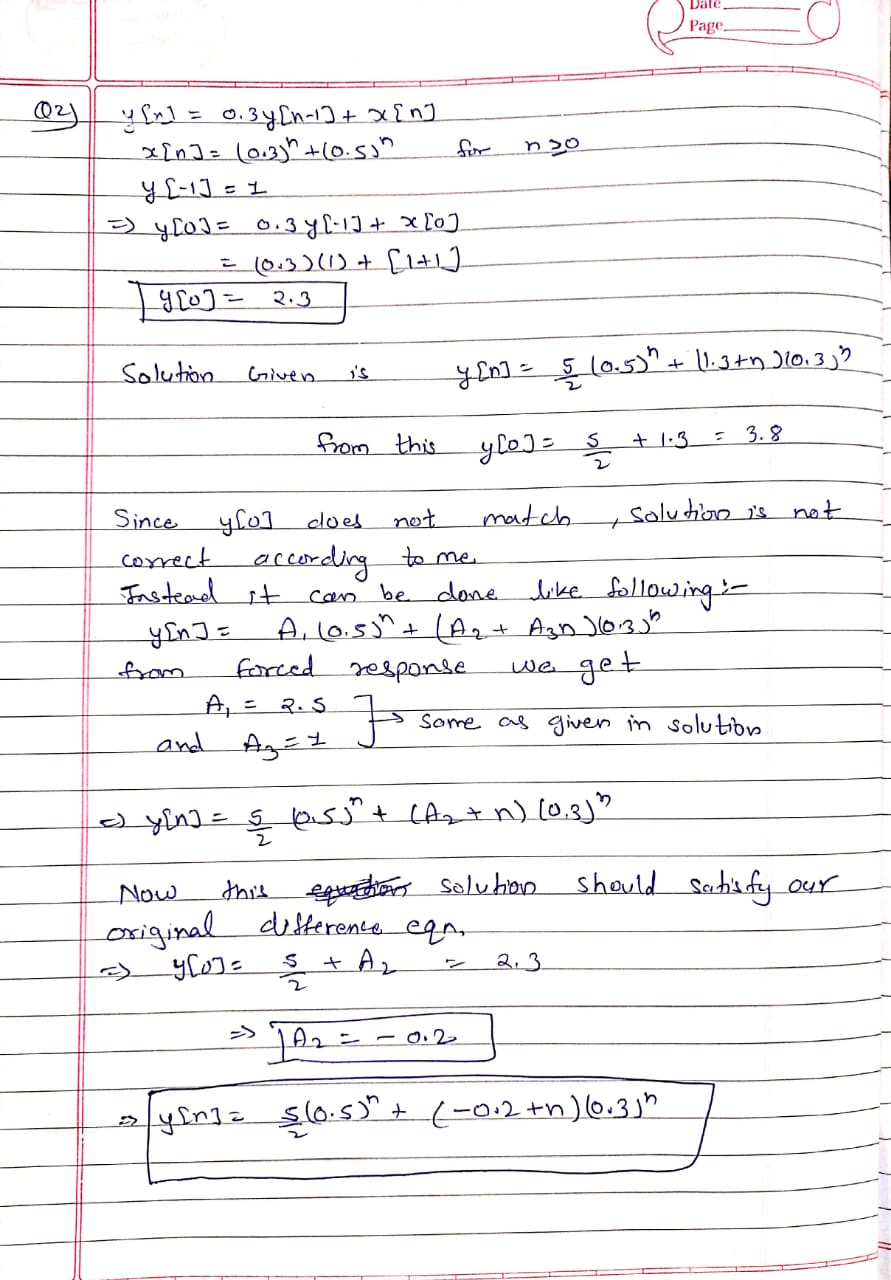 Date
Page
Q2) y[n] = 0.3y[n-1] + x[n]
x[n] = (0.3)ⁿ + (0.5)ⁿ for n≥0
y[-1] = 1
⇒ y[0] = 0.3 y[-1] + x[0]
= (0.3)(1) + [1+1]
y[0] = 2.3
Solution Given is y[n] = 5/2 (0.5)ⁿ + (1.3+n)(0.3)ⁿ
from this y[0] = 5/2 + 1.3 = 3.8
Since y[0] does not match, solution is not
correct according to me.
Instead it can be done like following :-
y[n] = A₁(0.5)ⁿ + (A₂ + A₃n)(0.3)ⁿ
from forced response we get
A₁ = 2.5
and A₃ = 1 } → same as given in solution
⇒ y[n] = 5/2 (0.5)ⁿ + (A₂ + n) (0.3)ⁿ
Now this equation solution should satisfy our
original difference eqn,
⇒ y[0] = 5/2 + A₂ = 2.3
⇒ A₂ = -0.2
⇒ y[n] = 5/2 (0.5)ⁿ + (-0.2 + n)(0.3)ⁿ